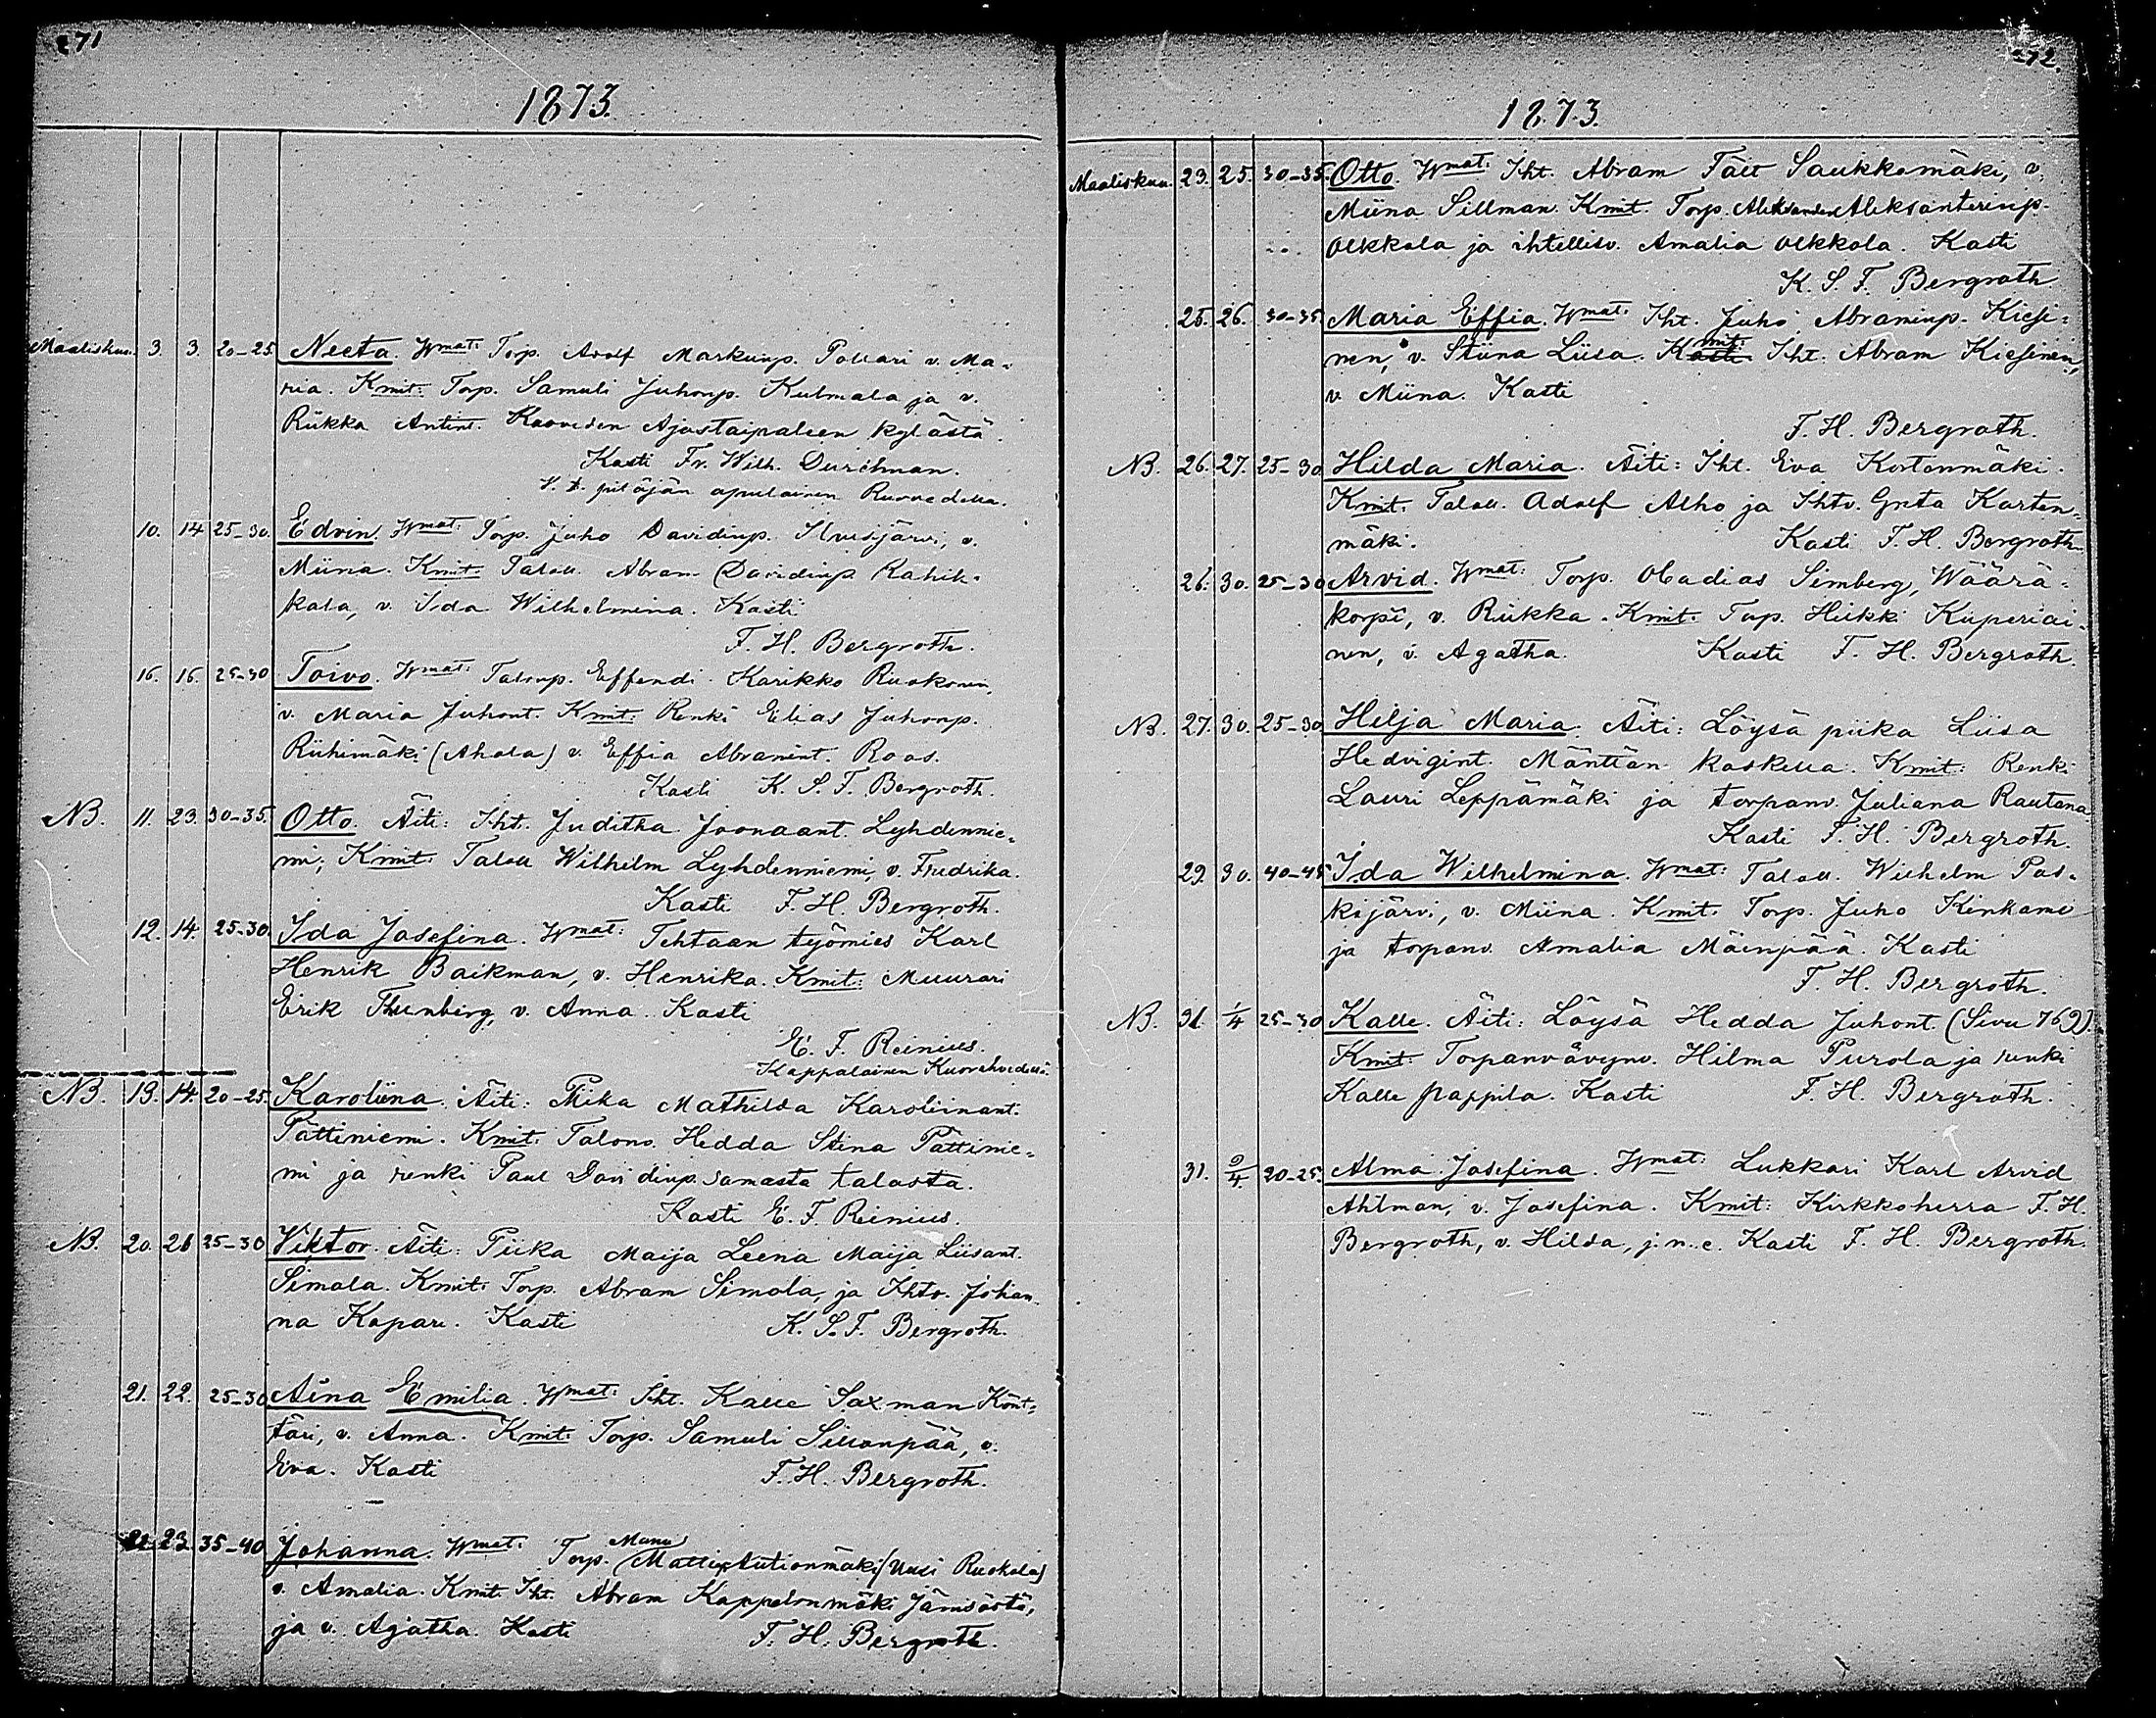 271
1873.
Maaliskuu. 3. 3. 20-25 Neeta. Wmat: Torp. Adolf Markunp. Pollari v. Ma=
ria. Kmit: Torp. Samuli Juhonp. Kulmala ja v.
Riikka Antint. Kaaveden Ajostaipaleen kylästä.
Kasti Fr. Wilh. Durchman.
V. t. pitäjän apulainen Ruovedellä.
10. 14 25-30. Edvin. Wmat: Torp. Juho Davidinp. Ilvesjärvi, v.
Miina. Kmit: Talall. Abram Davidinp. Rahik=
kala, v. Ida Wilhelmina. Kasti
F. H. Bergroth.
16. 16. 25-30 Toivo. Wmat: Talonp. Effendi Karikko Ruokonen,
v. Maria Juhont. Kmit: Renki Elias Juhonp.
Riihimäki (Ahola) v. Effia Abramint. Roos.
Kasti K. S. F. Bergroth.
NB. 11. 23. 30-35. Otto. Äiti: Iht. Juditha Joonaant. Lyhdennie=
mi; Kmit: Talall Wilhelm Lyhdenniemi, v. Fredrika.
Kasti F. H. Bergroth.
12. 14. 25-30. Ida Josefina. Wmat: Tehtaan työmies Karl
Henrik Baikman, v. Henrika. Kmit: Muurari
Erik Thunberg, v. Anna. Kasti
E. F. Reinius.
Kappalainen Kuorehvedellä.
NB. 13. 14. 20-25. Karoliina. Äiti: Piika Mathilda Karoliinant.
Pättiniemi. Kmit: Talonv. Hedda Stina Pättinie=
mi ja renki Paul Davidinp. samasta talosta.
Kasti E. F. Reinius.
NB. 20. 21 25-30 Viktor. Äiti: Piika Maija Leena Maija Liisant.
Simola. Kmit: Torp. Abram Simola, ja Ihtv. Johan
na Kopare. Kasti K. S. F. Bergroth.
21. 22. 25-30 Aina Emilia. Wmat: Iht. Kalle Saxman Könt=
täri, v. Anna. Kmit: Torp. Samuli Sillanpää, v.
Eva. Kasti F. H. Bergroth.
22. 23. 35-40 Johanna. Wmat: Torp. Manu Mattinp. Autionmäki (Uusi Ruokola)
v. Amalia. Kmit: Iht. Abram Kappelinmäki Jämsöstä,
ja v. Agatha. Kasti F. H. Bergroth.
272.
1873.
Maaliskuu. 23. 25. 30-35. Otto. Wmat: Iht. Abram Fält Saukkomäki, v.
Miina Sillman. Kmit. Torp. Aleksander Aleksanterinp.
Olkkola ja ihtellisv. Amalia Olkkola. Kasti
K. S. F. Bergroth
25. 26. 30-35. Maria Effia. Wmat: Iht. Juho Abraminp. Kiesi=
nen, v. Stiina Liisa. Kmit: Iht. Abram Kiesinen,
v. Miina. Kasti
F. H. Bergroth.
NB. 26. 27. 25-30 Hilda Maria. Äiti: Iht. Eva Kortenmäki.
Kmit. Talall. Adolf Alho ja Ihtv. Greta Korten=
mäki. Kasti F. H. Bergroth.
26. 30. 25-30 Arvid. Wmat: Torp. Obadias Simberg, Wäärä=
korpi, v. Riikka. Kmit. Torp. Heikki Kuperiai=
nen, v. Agatha. Kasti F. H. Bergroth.
NB. 27. 30. 25-30 Hilja Maria. Äiti: Löysä piika Liisa
Hedvigint. Mänttän koskella. Kmit: Renki
Lauri Leppämäki ja torpanv. Juliana Rautana.
Kasti F. H. Bergroth.
29. 30. 40-45 Ida Wilhelmina. Wmat: Talall. Wilhelm Pas=
kijärvi, v. Miina. Kmit. Torp. Juho Kinkamo
ja torpanv. Amalia Mäenpää. Kasti
F. H. Bergroth.
NB. 31. 1/4 25-30 Kalle. Äiti: Löysä Hedda Juhont. (Sivu 769).
Kmit. Torpanvävynv. Hilma Purola ja renki
Kalle Pappila. Kasti F. H. Bergroth.
31. 2/4. 20-25. Alma Josefina. Wmat: Lukkari Karl Arvid
Ahlman, v. Josefina. Kmit: Kirkkoherra F. H.
Bergroth, v. Hilda, j.n.e. Kasti F. H. Bergroth.